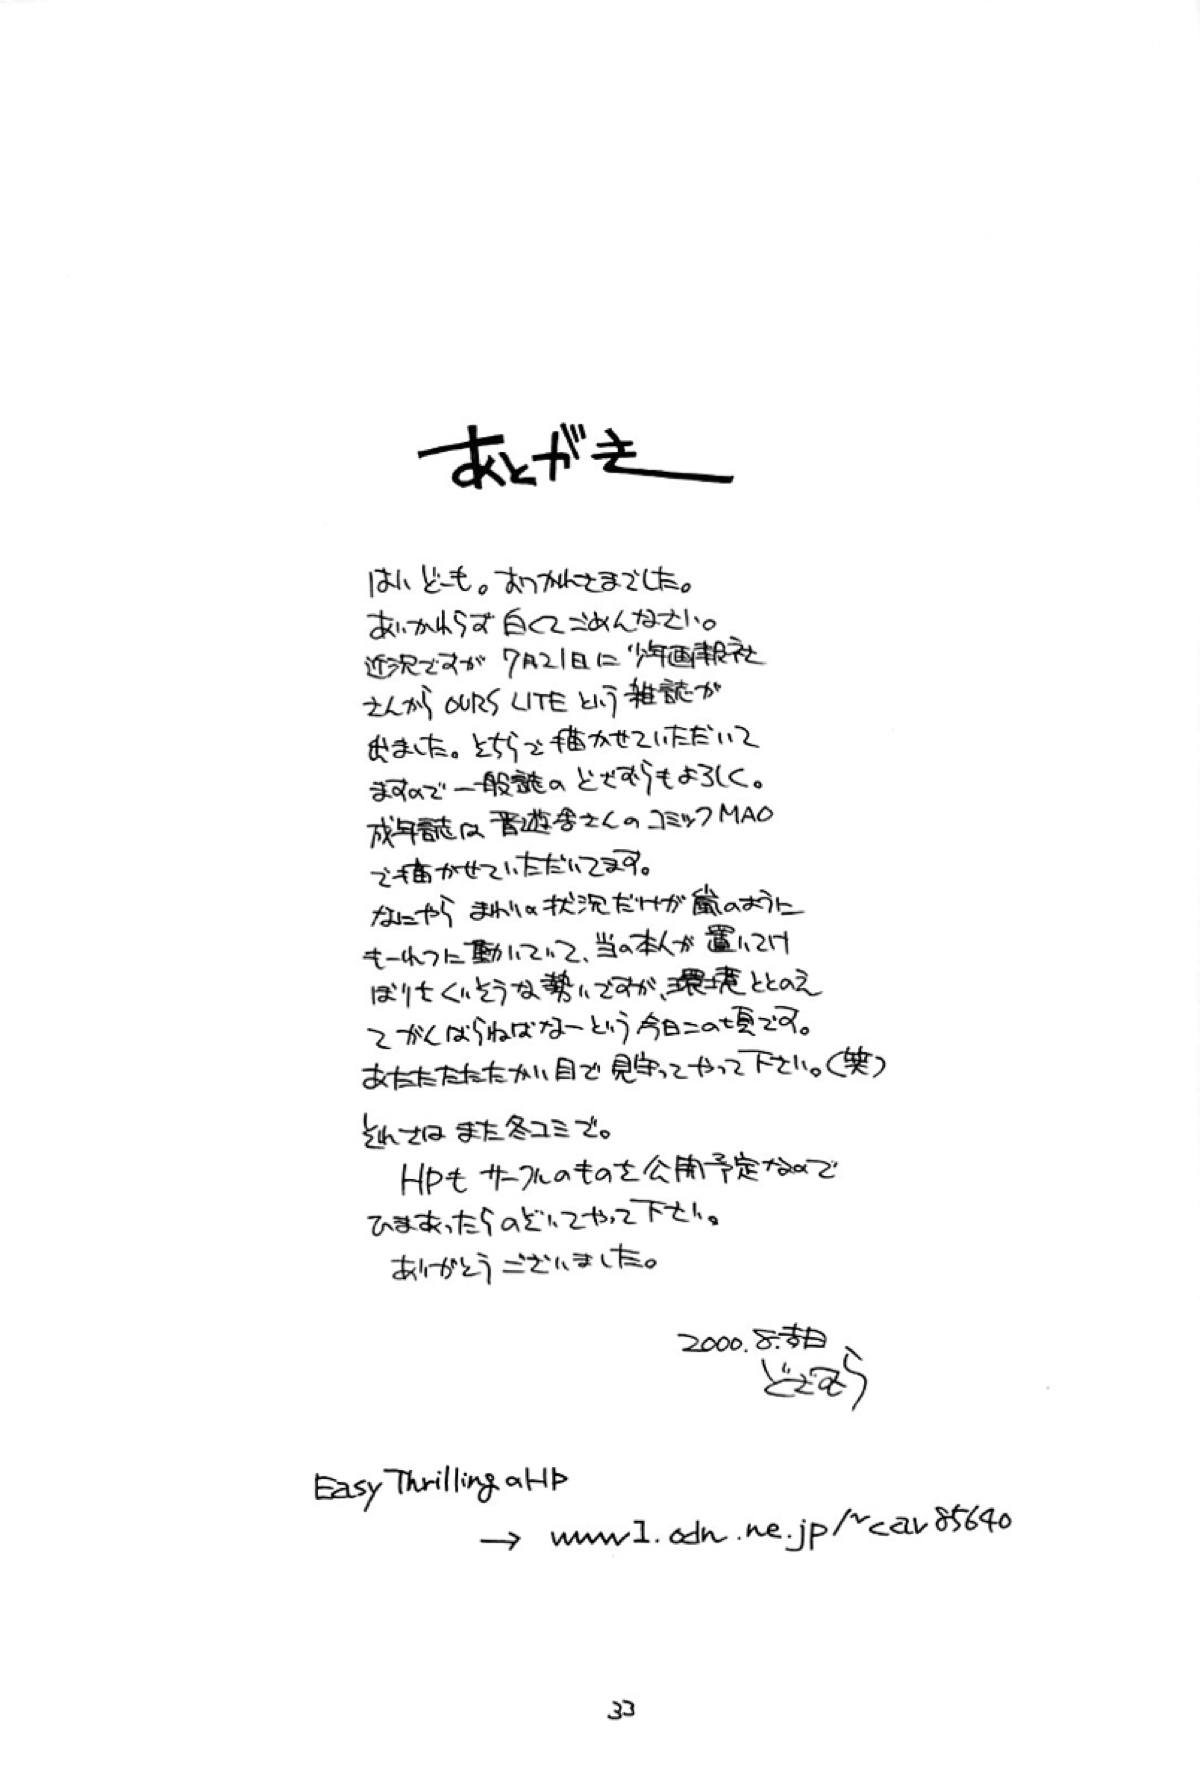 あとがき
はい どーも。おつかれさまでした。
あいかわらず 白くて ごめんなさい。
近況ですが 7月21日に 少年画報社
さんから OURS LITE という 雑誌が
出ました。そちらで 描かせていただいて
ますので 一般誌の どざむらもよろしく。
成年誌は 晋遊舎さんの コミックMAO
で描かせていただいてます。
なにやら まわりの状況だけが 嵐のように
もーれつに 動いていて、当の本人が 置いてけ
ぼりもくいそうな 勢いですが、環境ととのえ
て がんばらねばなーという 今日この頃です。
あたたたたたかい 目で 見守ってやって下さい。(笑)
それでは また 冬コミで。
HPも サークルのものを 公開予定なので
ひまあったら のぞいてやって 下さい。
ありがとう ございました。
2000. 8.
どざむら
Easy ThrillingのHP
→ www1.odn.ne.jp/~cav85640
33